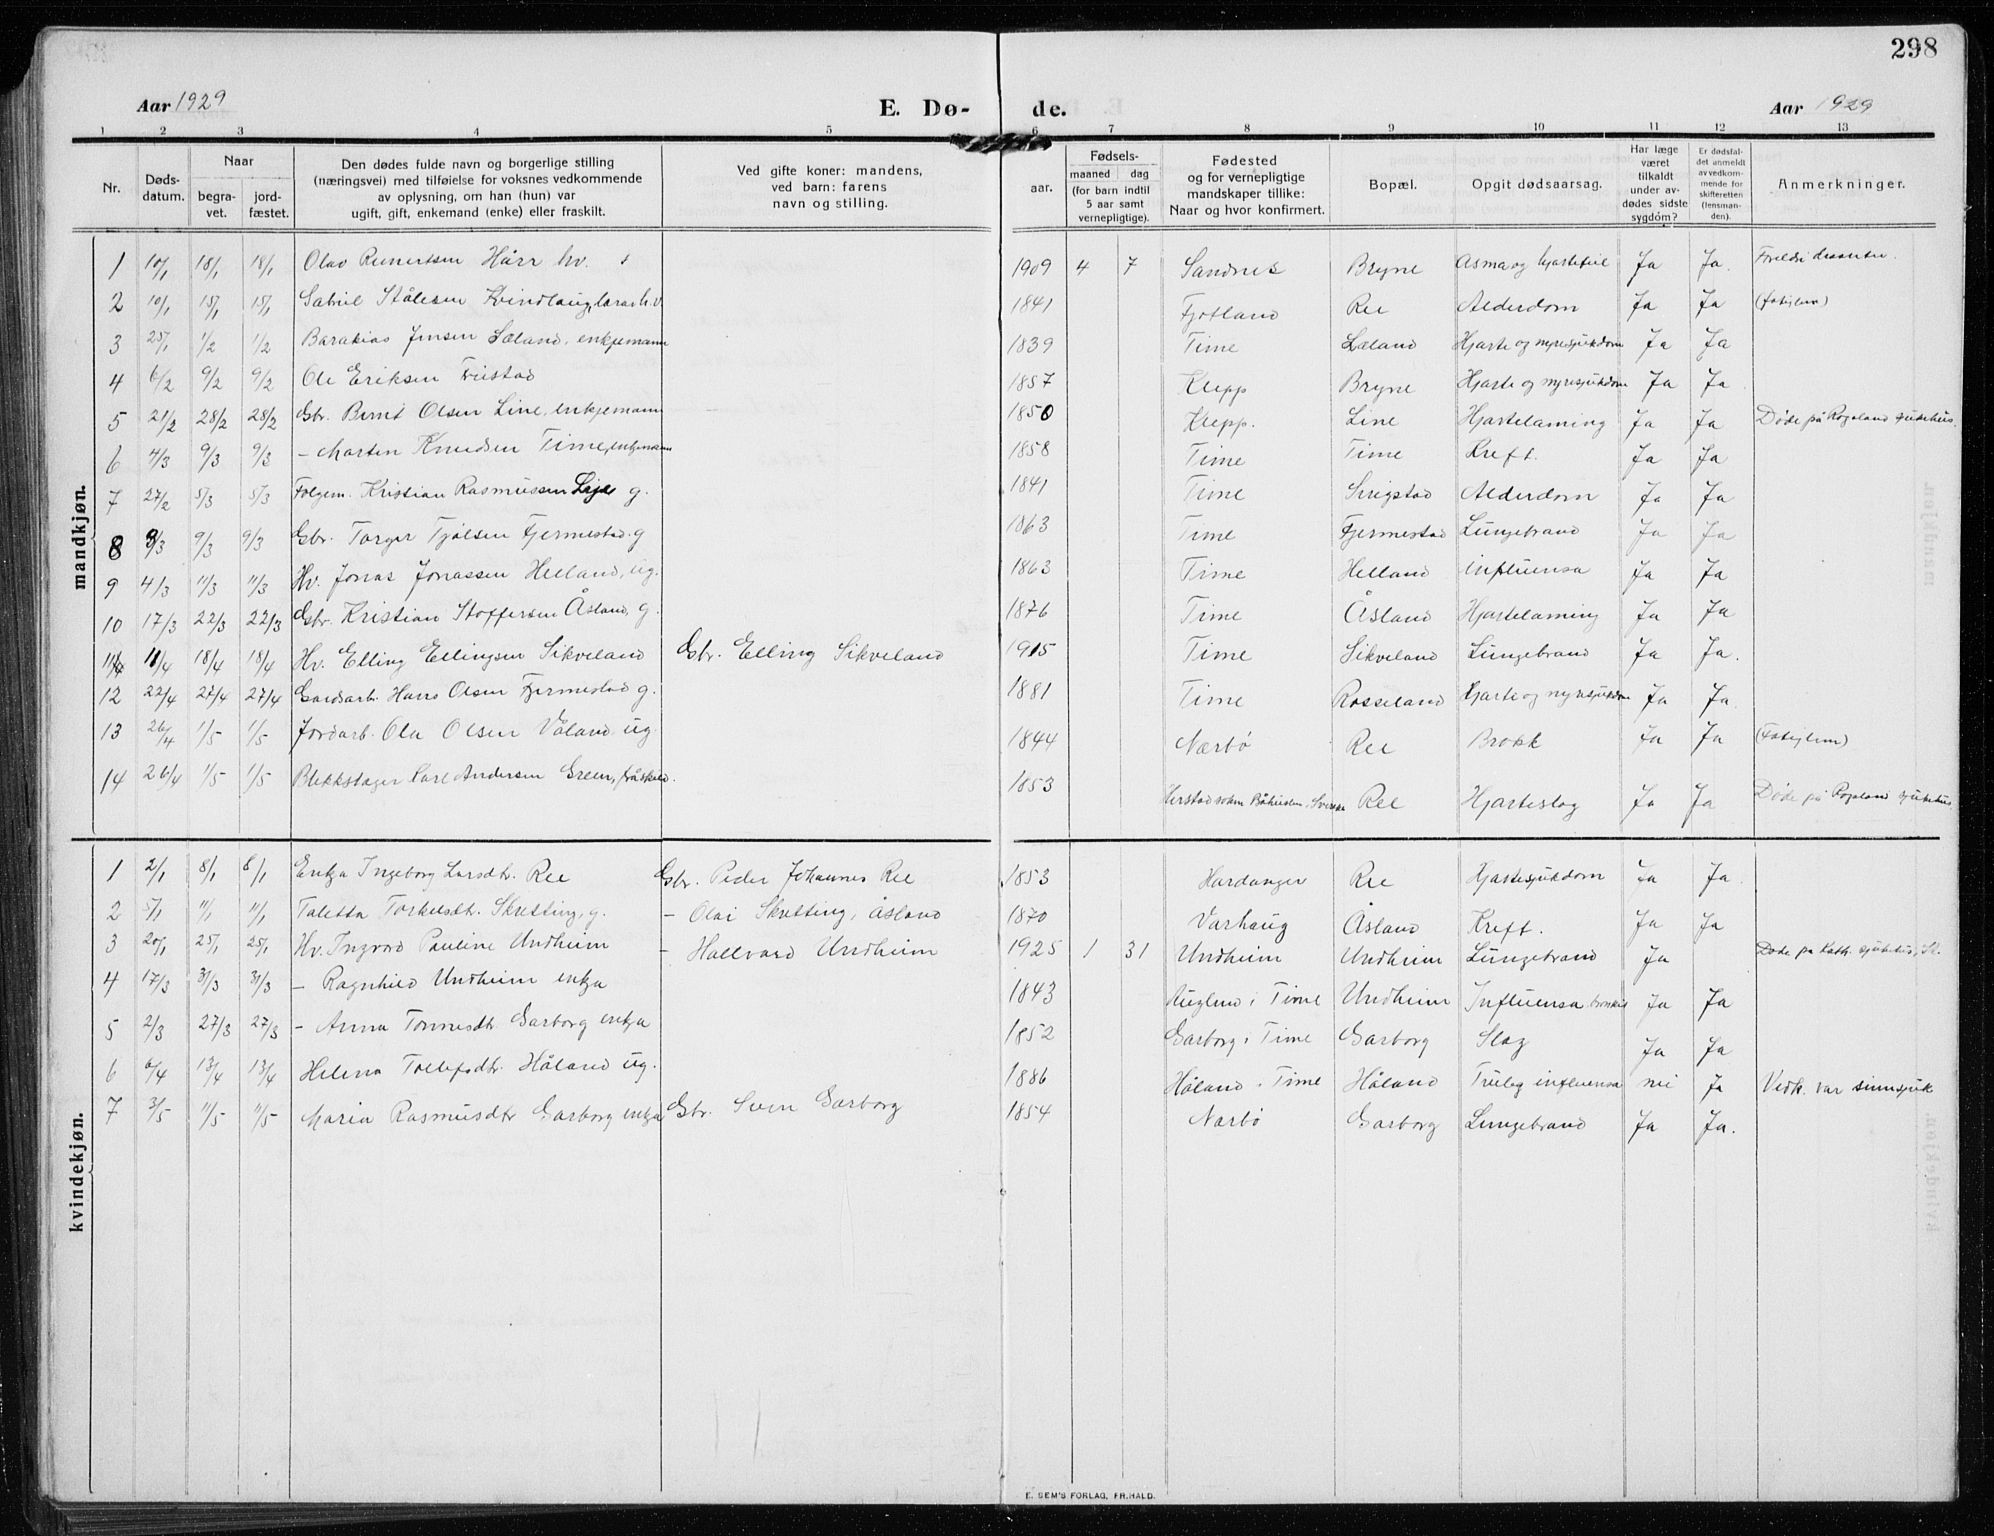 298
Aar 1929 E. Dø- de. Aar 1929
1 2 3 4 5 6 7 8 9 10 11 12 13
Nr.
Døds-
datum.
Naar
begra-
vet.
jord-
fæstet.
Den dødes fulde navn og borgerlige stilling
(næringsvei) med tilføielse for voksnes vedkommende
av oplysning, om han (hun) var
ugift, gift, enkemand (enke) eller fraskilt.
Ved gifte koner: mandens,
ved barn: farens
navn og stilling.
Fødsels-
aar. maaned dag
(for barn indtil
5 aar samt
vernepligtige).
Fødested
og for vernepligtige
mandskaper tillike:
Naar og hvor konfirmert.
Bopæl.
Opgit dødsaarsag.
Har læge
været
tilkaldt
under av-
dødes sidste
sygdom?
Er dødsfal-
det anmeldt
av vedkom-
mende for
skifteretten
(lensman-
den).
Anmerkninger.
mandkjøn.
1 10/1 18/1 18/1 Olav Reinertsen Hårr hv. 1909 4 7 Sandnes Bryne Asma og hjartefeil Ja Ja.
2 10/1 15/1 15/1 Gabriel Stålesen Kvindlaug, 1841 Fjotland Ree Alderdom Ja Ja
3 25/1 1/2 1/2 Barakias Jensen Læland, enkjemann 1839 Time Læland Hjarte og nyresjukdom Ja Ja
4 6/2 9/2 9/2 Ole Eriksen Fristad 1857 Klepp Bryne Hjarte og nyresjukdom Ja Ja.
5 21/2 28/2 28/2 Gbr. Bernt Olsen Line, enkjemann 1850 Klepp. Line Hjartelaming Ja Ja Døde på Rogaland sjukehus.
6 4/3 9/3 9/3 - Morten Knudsen Time, enkjemann 1858 Time Time Kreft. Ja Ja
7 27/2 5/3 5/3 Folgem. Kristian Rasmussen Lye g. 1841 Time Sirigstad Alderdom Ja Ja
8 3/3 9/3 9/3 Gbr. Torger Tjølsen Fjermestad g 1863 Time Fjermestad Lungebrand Ja Ja
9 4/3 11/3 11/3 Hv. Jonas Jonassen Helland, ug. 1863 Time Helland Influensa Ja Ja
10 17/3 22/3 22/3 Gbr. Kristian Stoffersen Åsland, g. 1876 Time Åsland Hjartelaming Ja Ja
11 11/4 18/4 18/4 Hv. Elling Ellingsen Sikveland Gbr. Elling Sikveland 1915 Time Sikveland Lungebrand Ja Ja.
12 22/4 27/4 27/4 Gardsarb. Hans Olsen Fjermestad g. 1881 Time Rosseland Hjarte og nyresjukdom Ja Ja.
13 26/4 1/5 1/5 Jordarb. Ola Olsen Våland, ug. 1844 Nærbø Ree Brokk Ja Ja
14 26/4 1/5 1/5 Blikkslager Carl Andersen Green, fråskild. 1853 Ree Hjarteslag Ja Ja Døde på Rogaland sjukehus
kvindekjøn.
1 2/1 8/1 8/1 Enkja Ingeborg Larsdtr. Ree Gbr. Peder Johannes Ree 1853 Hardanger Ree Hjartesjukdom Ja Ja.
2 5/1 11/1 11/1 Taletta Torkelsdtr. Skretting, g. - Olai Skretting, Åsland 1870 Varhaug Åsland Kreft. Ja Ja
3 20/1 25/1 25/1 Hv. Ingvord Pauline Undheim - Hallvard Undheim 1925 1 31 Undheim Undheim Lungebrand Ja Døde på Kath. sjukehus, St.
4 17/3 31/3 31/3 - Ragnhild Undheim enkja 1843 Auglend i Time Undheim Influensa bronkit Ja Ja
5 2/3 27/3 27/3 - Anna Tønnesdtr. Garborg enkja 1852 Garborg i Time Garborg Slag Ja Ja
6 6/4 13/4 13/4 Helena Tollefsdtr. Håland ug. 1886 Håland i Time Håland Truleg influensa nei Ja Vedk. var sinnsjuk
7 3/5 11/5 11/5 Maria Rasmusdtr Garborg enkja Gbr. Sven Garborg 1854 Nærbø Garborg Lungebrand Ja Ja.
E. SEM'S FORLAG, FR.HALD.